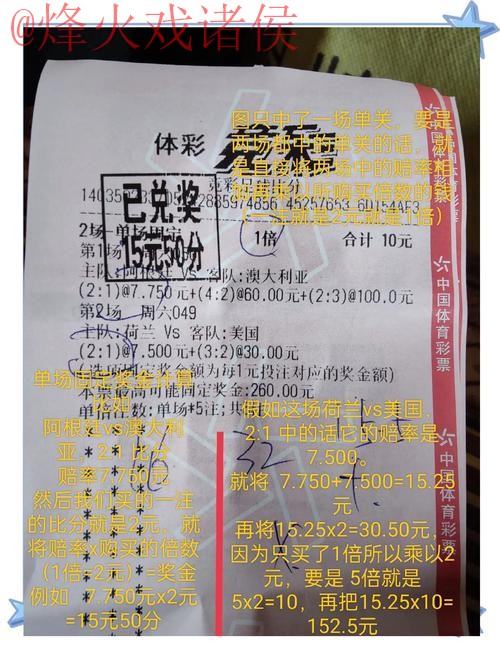 @烽火戏诸侯
图只中了一场单关，要是
两场都中的单关的话，就
是直接将两场中的赔率相
（一注就是2元就是1倍）
体彩
已兑奖
15元50分
2场-单场固定
1倍
合计 10元
第1场
主队:阿根廷 Vs 客队:澳大利亚
(2:1)@7.750元+(4:2)@60.00元+(2:3)@100.0元
第2场 周六049
主队:荷兰 Vs 客队:美国
(2:1)@7.500元+(3:2)@30.00元
(选项固定奖金额为每1元投注对应的奖金额)
本票最高可能固定奖金:260.00元
单倍注数:单场*5注;共
单场固定奖金计算
比如
阿根廷vs澳大利
亚，2:1 比分
赔率7.750元
然后我们买的一注
的比分就是2元，就
将赔率x购买的倍数
（1倍=2元）=奖金
例如 7.750元x2元
=15元50分
假如这场荷兰vs美国，
2:1 中的话它的赔率是
7.500。
就将 7.750+7.500=15.25
元
再将15.25x2=30.50元，
因为只买了1倍所以乘以2
元，要是 5倍就是
5x2=10，再把15.25x10=
152.5元
32
中国体育彩票
中国体育彩票
中国体育彩票